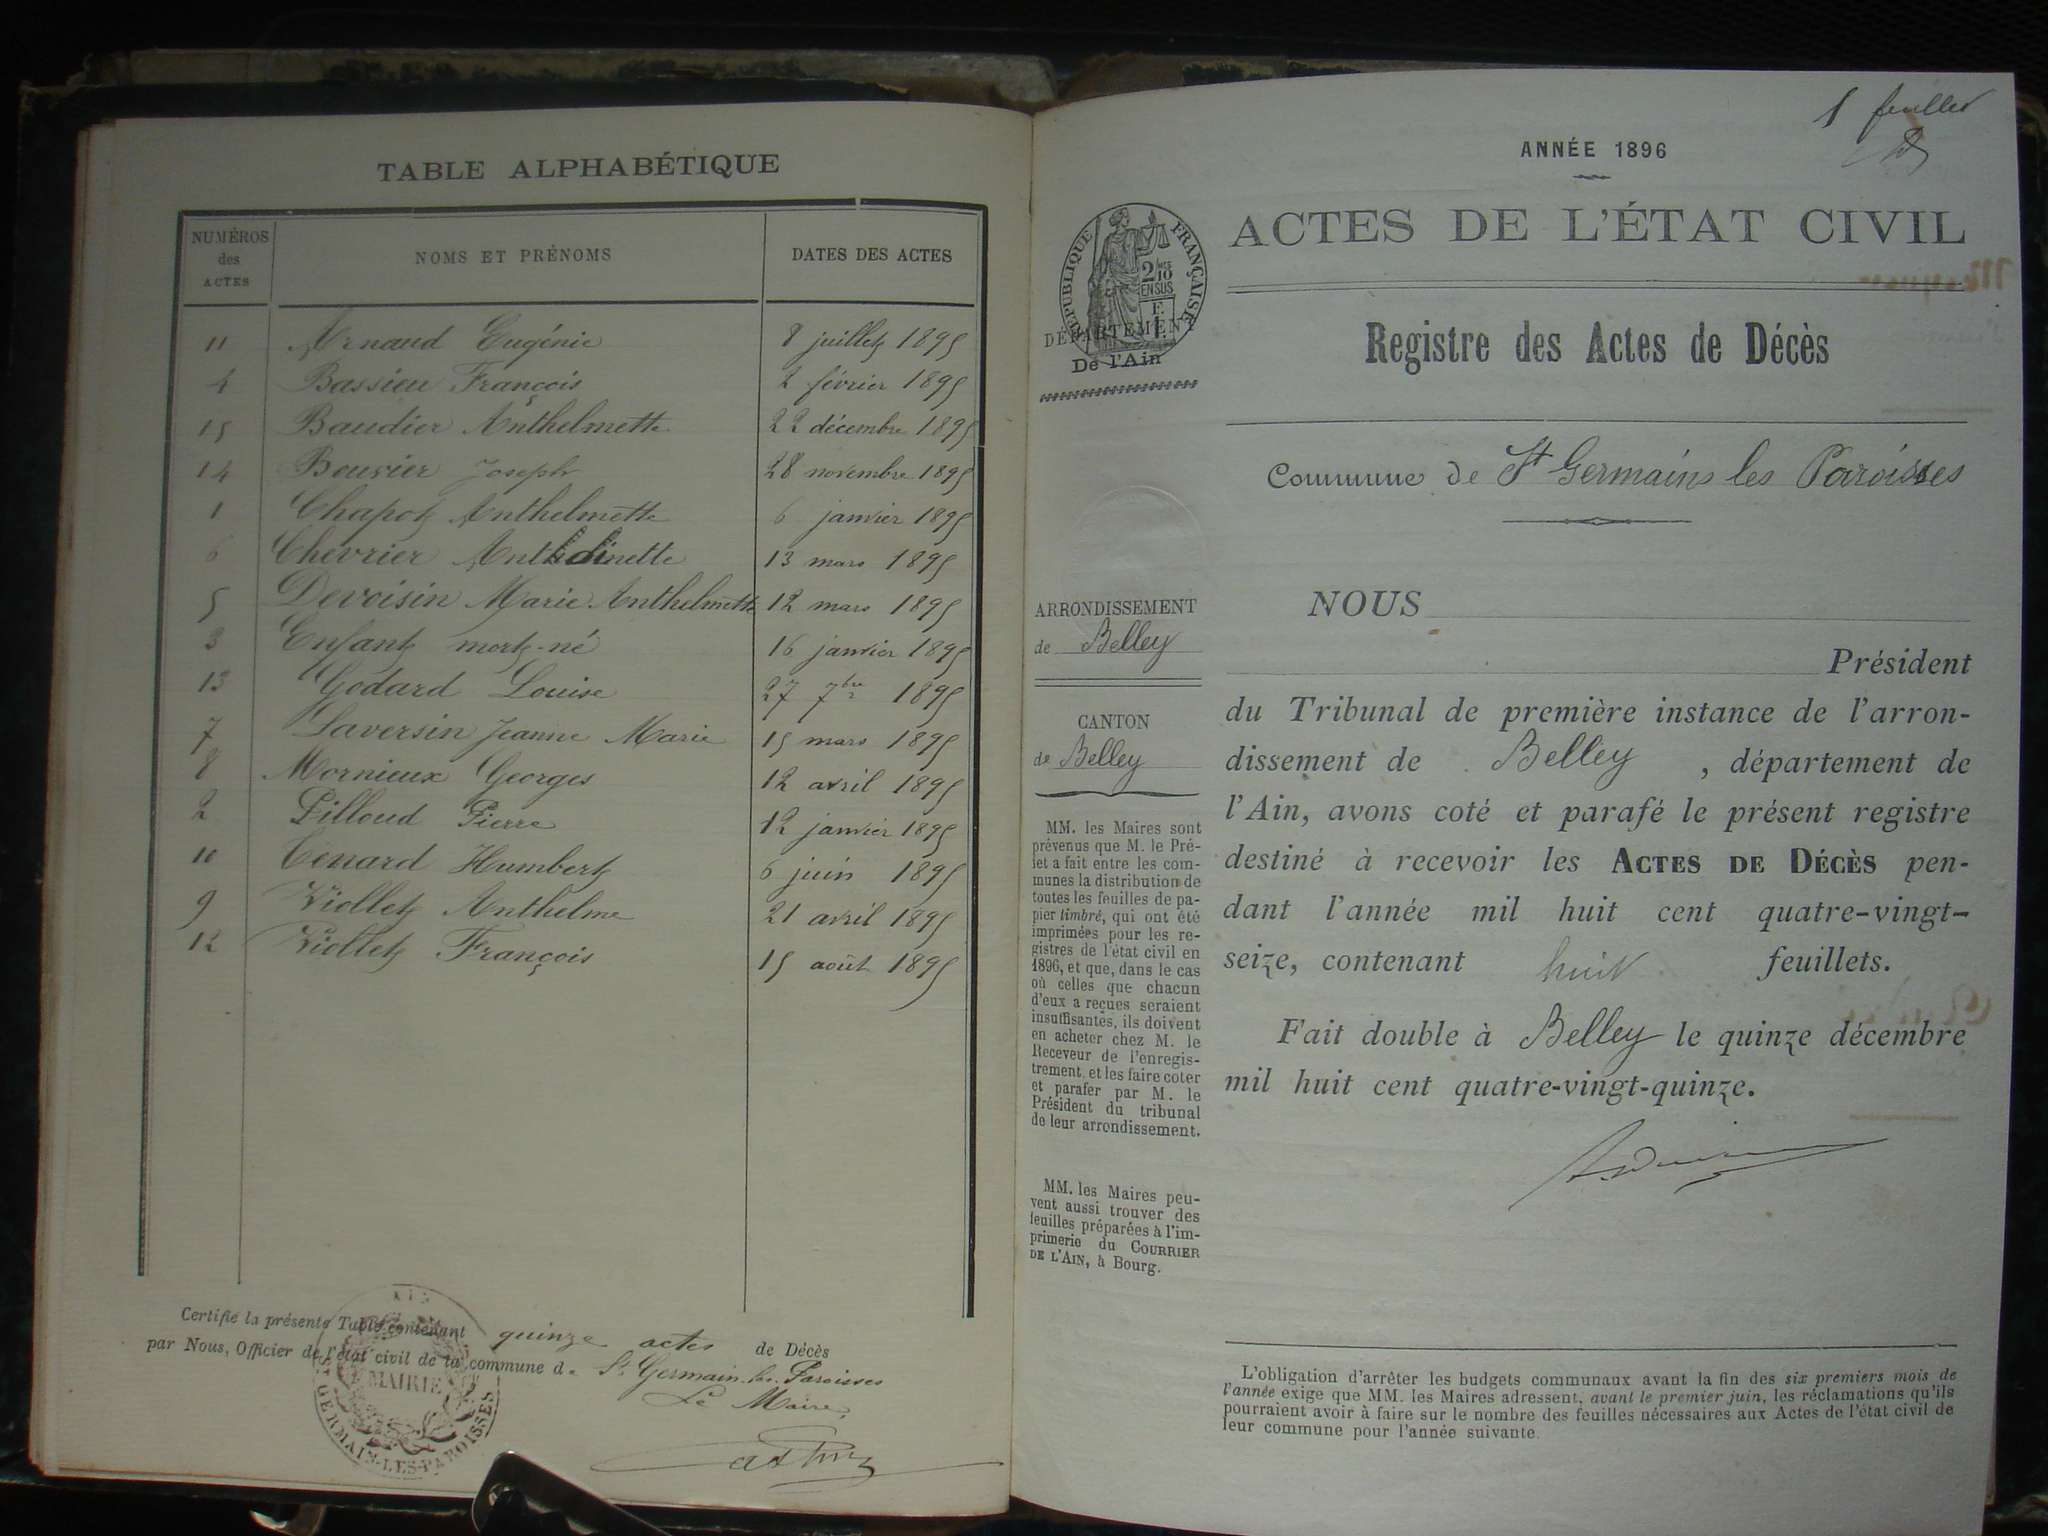 TABLE ALPHABÉTIQUE
NUMÉROS des ACTES NOMS ET PRÉNOMS DATES DES ACTES
11 Arnaud Eugénie 8 juillet 1895
4 Bassieu François 2 février 1895
15 Baudier Anthelmette 22 décembre 1895
14 Bouvier Joseph 28 novembre 1895
1 Chapot Anthelmette 6 janvier 1895
6 Chevrier 13 mars 1895
5 Devoisin Marie Anthelmette 12 mars 1895
3 Enfant mort-né 16 janvier 1895
13 Godard Louise 27 7bre 1895
7 Laversin Jeanne Marie 15 mars 1895
8 Mornieux Georges 12 avril 1895
2 Pilloud Pierre 12 janvier 1895
10 Humbert 6 juin 1895
9 Viollet Anthelme 21 avril 1895
12 Viollet François 15 août 1895
Certifié la présente Table contenant quinze actes de Décès
par Nous, Officier de l'état civil de la commune de St Germain les Paroisses
Le Maire,
MAIRIE
ST GERMAIN-LES-PAROISSES
1 feuillet
ANNÉE 1896
ACTES DE L'ÉTAT CIVIL
RÉPUBLIQUE FRANÇAISE
2/10
EN SUS
DÉPARTEMENT
De l'Ain
Registre des Actes de Décès
Commune de St Germains les Paroisses
ARRONDISSEMENT
de Belley
CANTON
de Belley
MM. les Maires sont
prévenus que M. le Pré-
fet a fait entre les com-
munes la distribution de
toutes les feuilles de pa-
pier timbré, qui ont été
imprimées pour les re-
gistres de l'état civil en
1896, et que, dans le cas
où celles que chacun
d'eux a reçues seraient
insuffisantes, ils doivent
en acheter chez M. le
Receveur de l'enregis-
trement, et les faire coter
et parafer par M. le
Président du tribunal
de leur arrondissement.
MM. les Maires peu-
vent aussi trouver des
feuilles préparées à l'im-
primerie du COURRIER
DE L'AIN, à Bourg.
NOUS
Président
du Tribunal de première instance de l'arron-
dissement de Belley, département de
l'Ain, avons coté et parafé le présent registre
destiné à recevoir les ACTES DE DÉCÈS pen-
dant l'année mil huit cent quatre-vingt-
seize, contenant huit feuillets.
Fait double à Belley le quinze décembre
mil huit cent quatre-vingt-quinze.
L'obligation d'arrêter les budgets communaux avant la fin des six premiers mois de
l'année exige que MM. les Maires adressent, avant le premier juin, les réclamations qu'ils
pourraient avoir à faire sur le nombre des feuilles nécessaires aux Actes de l'état civil de
leur commune pour l'année suivante.